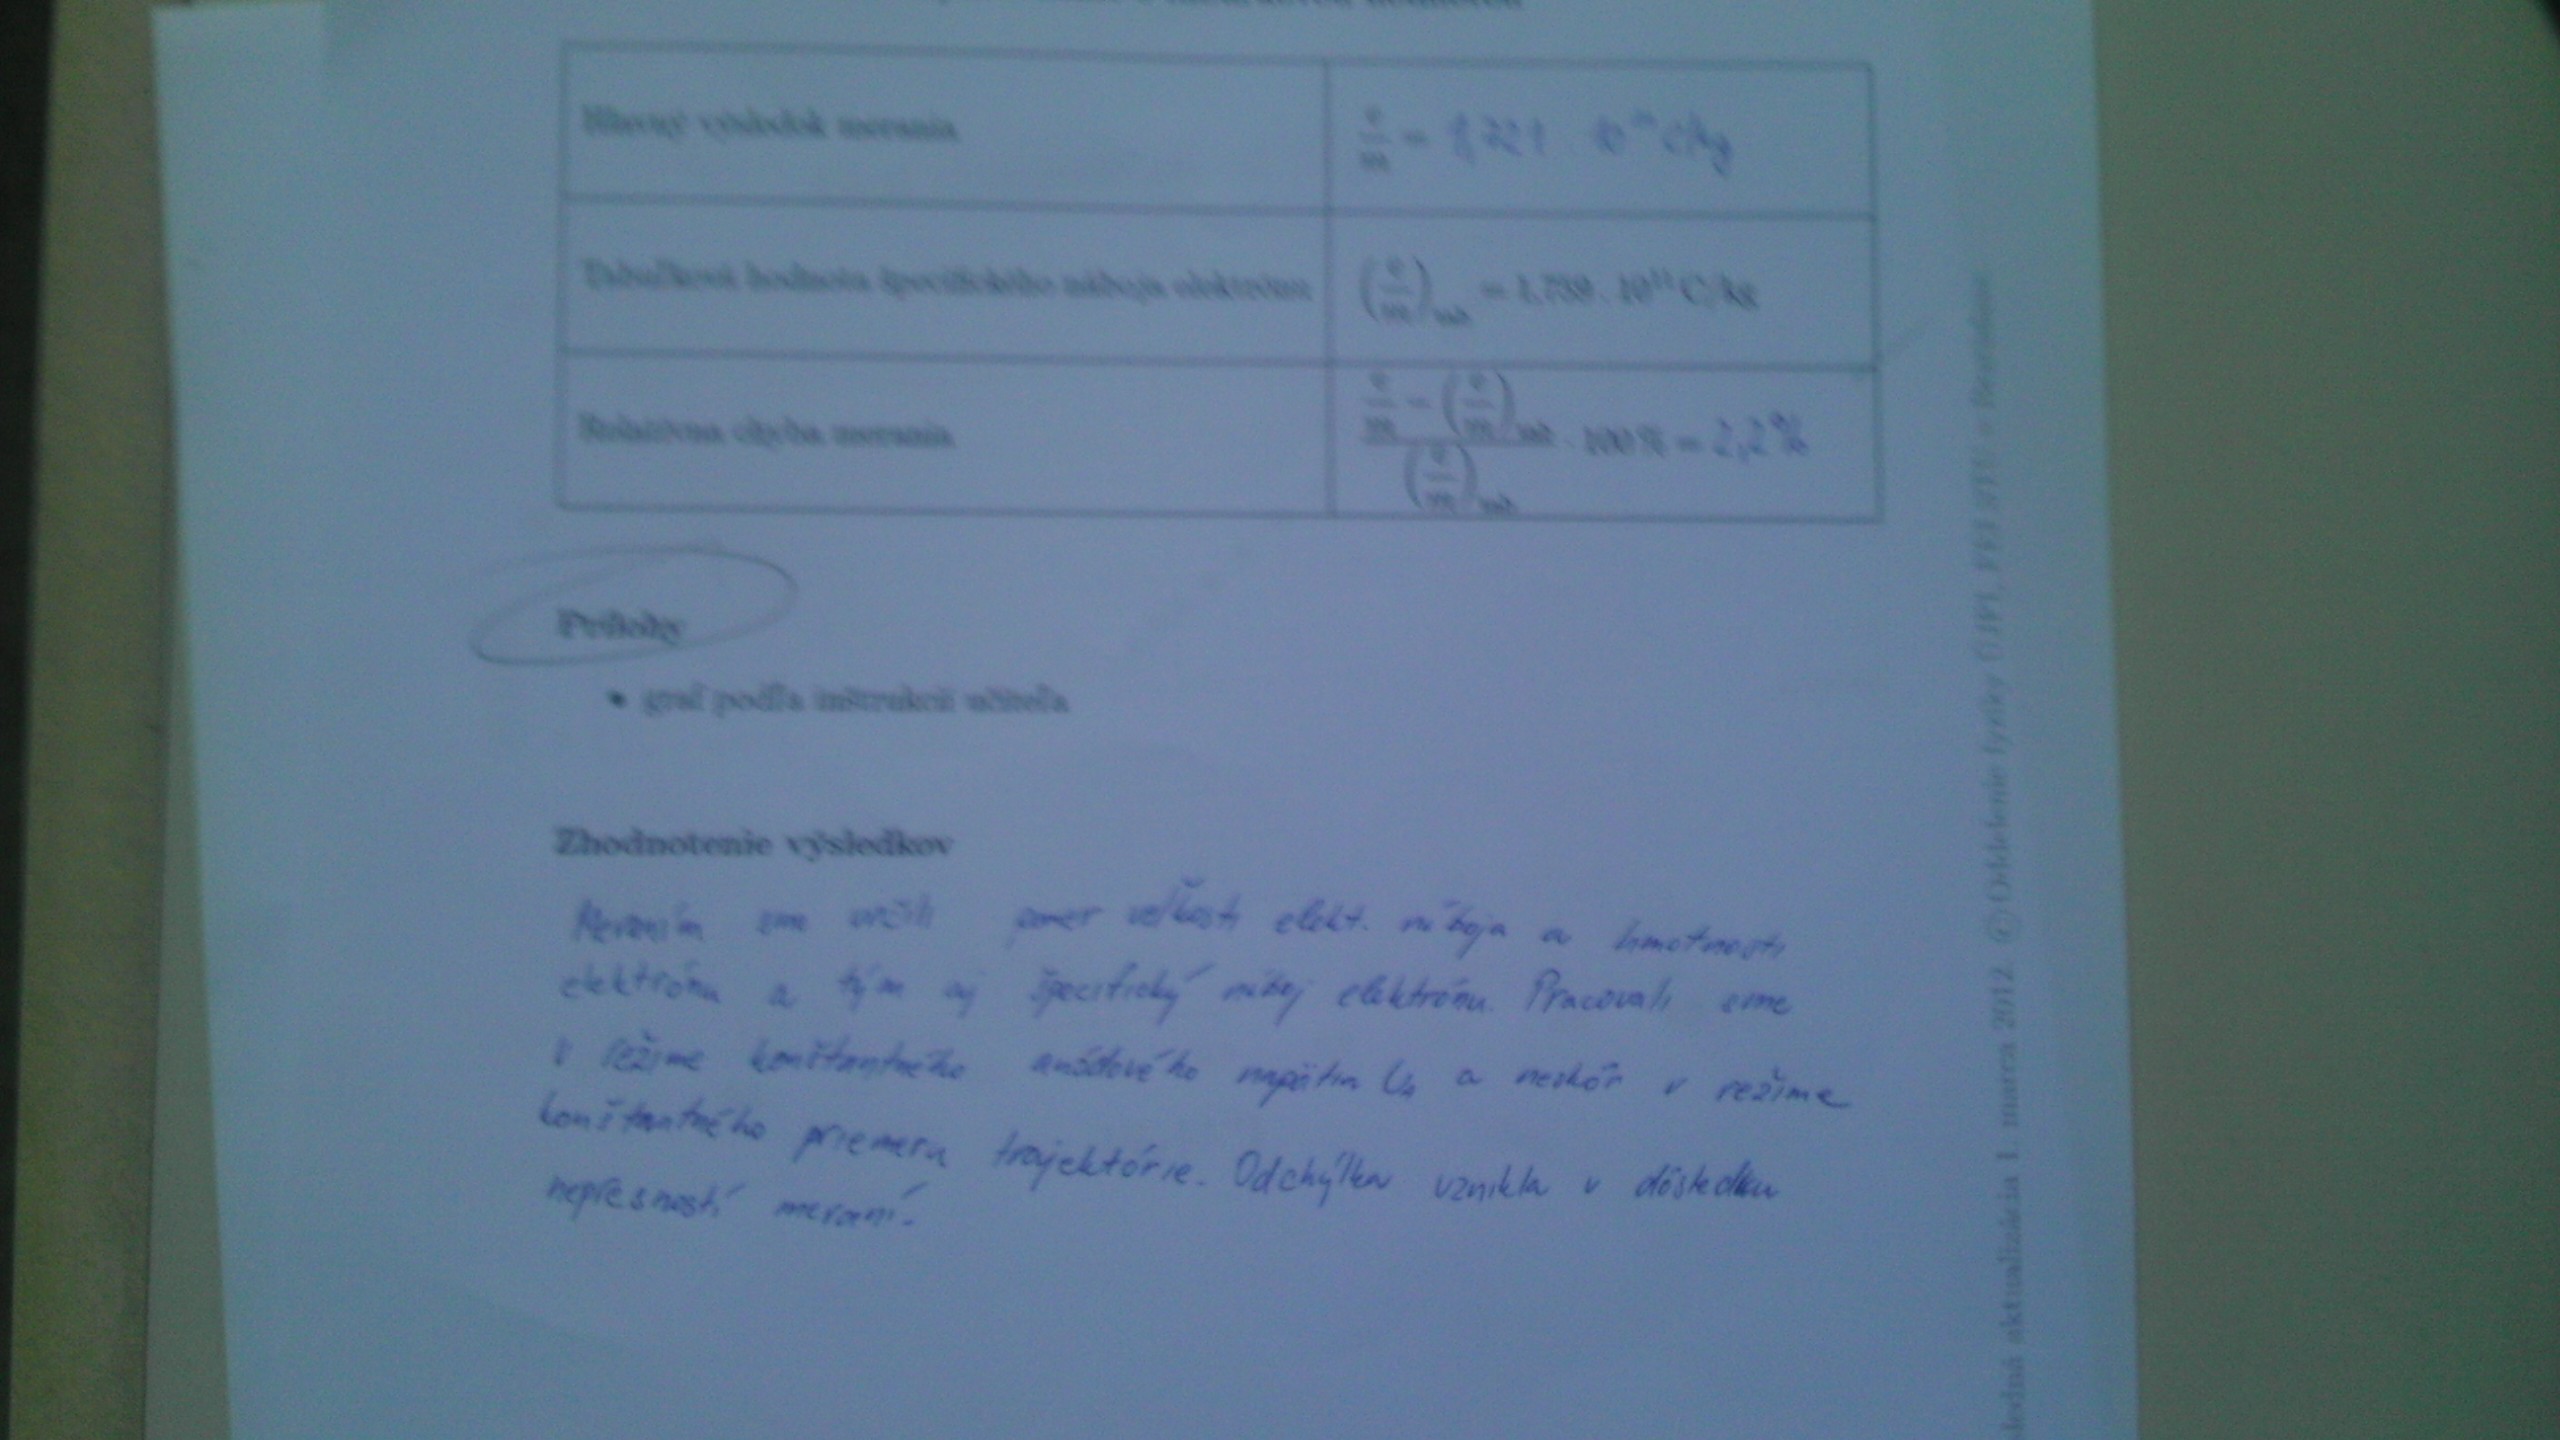 Hlavný výsledok merania
q/m = 1,721 . 10¹¹ C/kg
Tabuľková hodnota špecifického náboja elektrónu
(q/m)tab. = 1,759 . 10¹¹ C/kg
Relatívna chyba merania
q/m − (q/m)tab. / (q/m)tab. . 100 % = 2,2 %
Prílohy
• graf podľa inštrukcií učiteľa
Zhodnotenie výsledkov
Meraním sme určili pomer veľkosti elekt. náboja a hmotnosti
elektrónu a tým aj špecifický náboj elektrónu. Pracovali sme
v režime konštantného anódového napätia U a neskôr v režime
konštantného priemeru trajektórie. Odchýlka vznikla v dôsledku
nepresností meraní.
aktualizácia 1. marca 2012. © Oddelenie fyziky ÚJFI, FEI STU v Bratislave